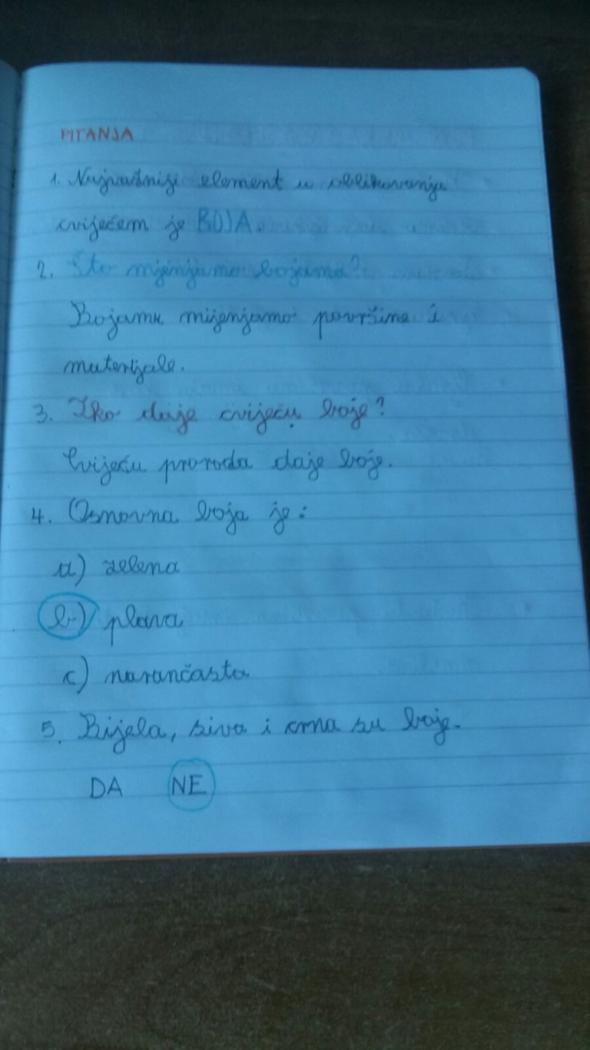 PITANJA
1. Najvažniji element u oblikovanju
cvijećem je BOJA.
2. Što mjenjamo bojama?
Bojama mijenjamo površine i
materijale.
3. Tko daje cvijeću boje?
Cvijeću priroda daje boje.
4. Osnovna boja je:
a) zelena
b) plava
c) narančasta
5. Bijela, siva i crna su boje.
DA NE